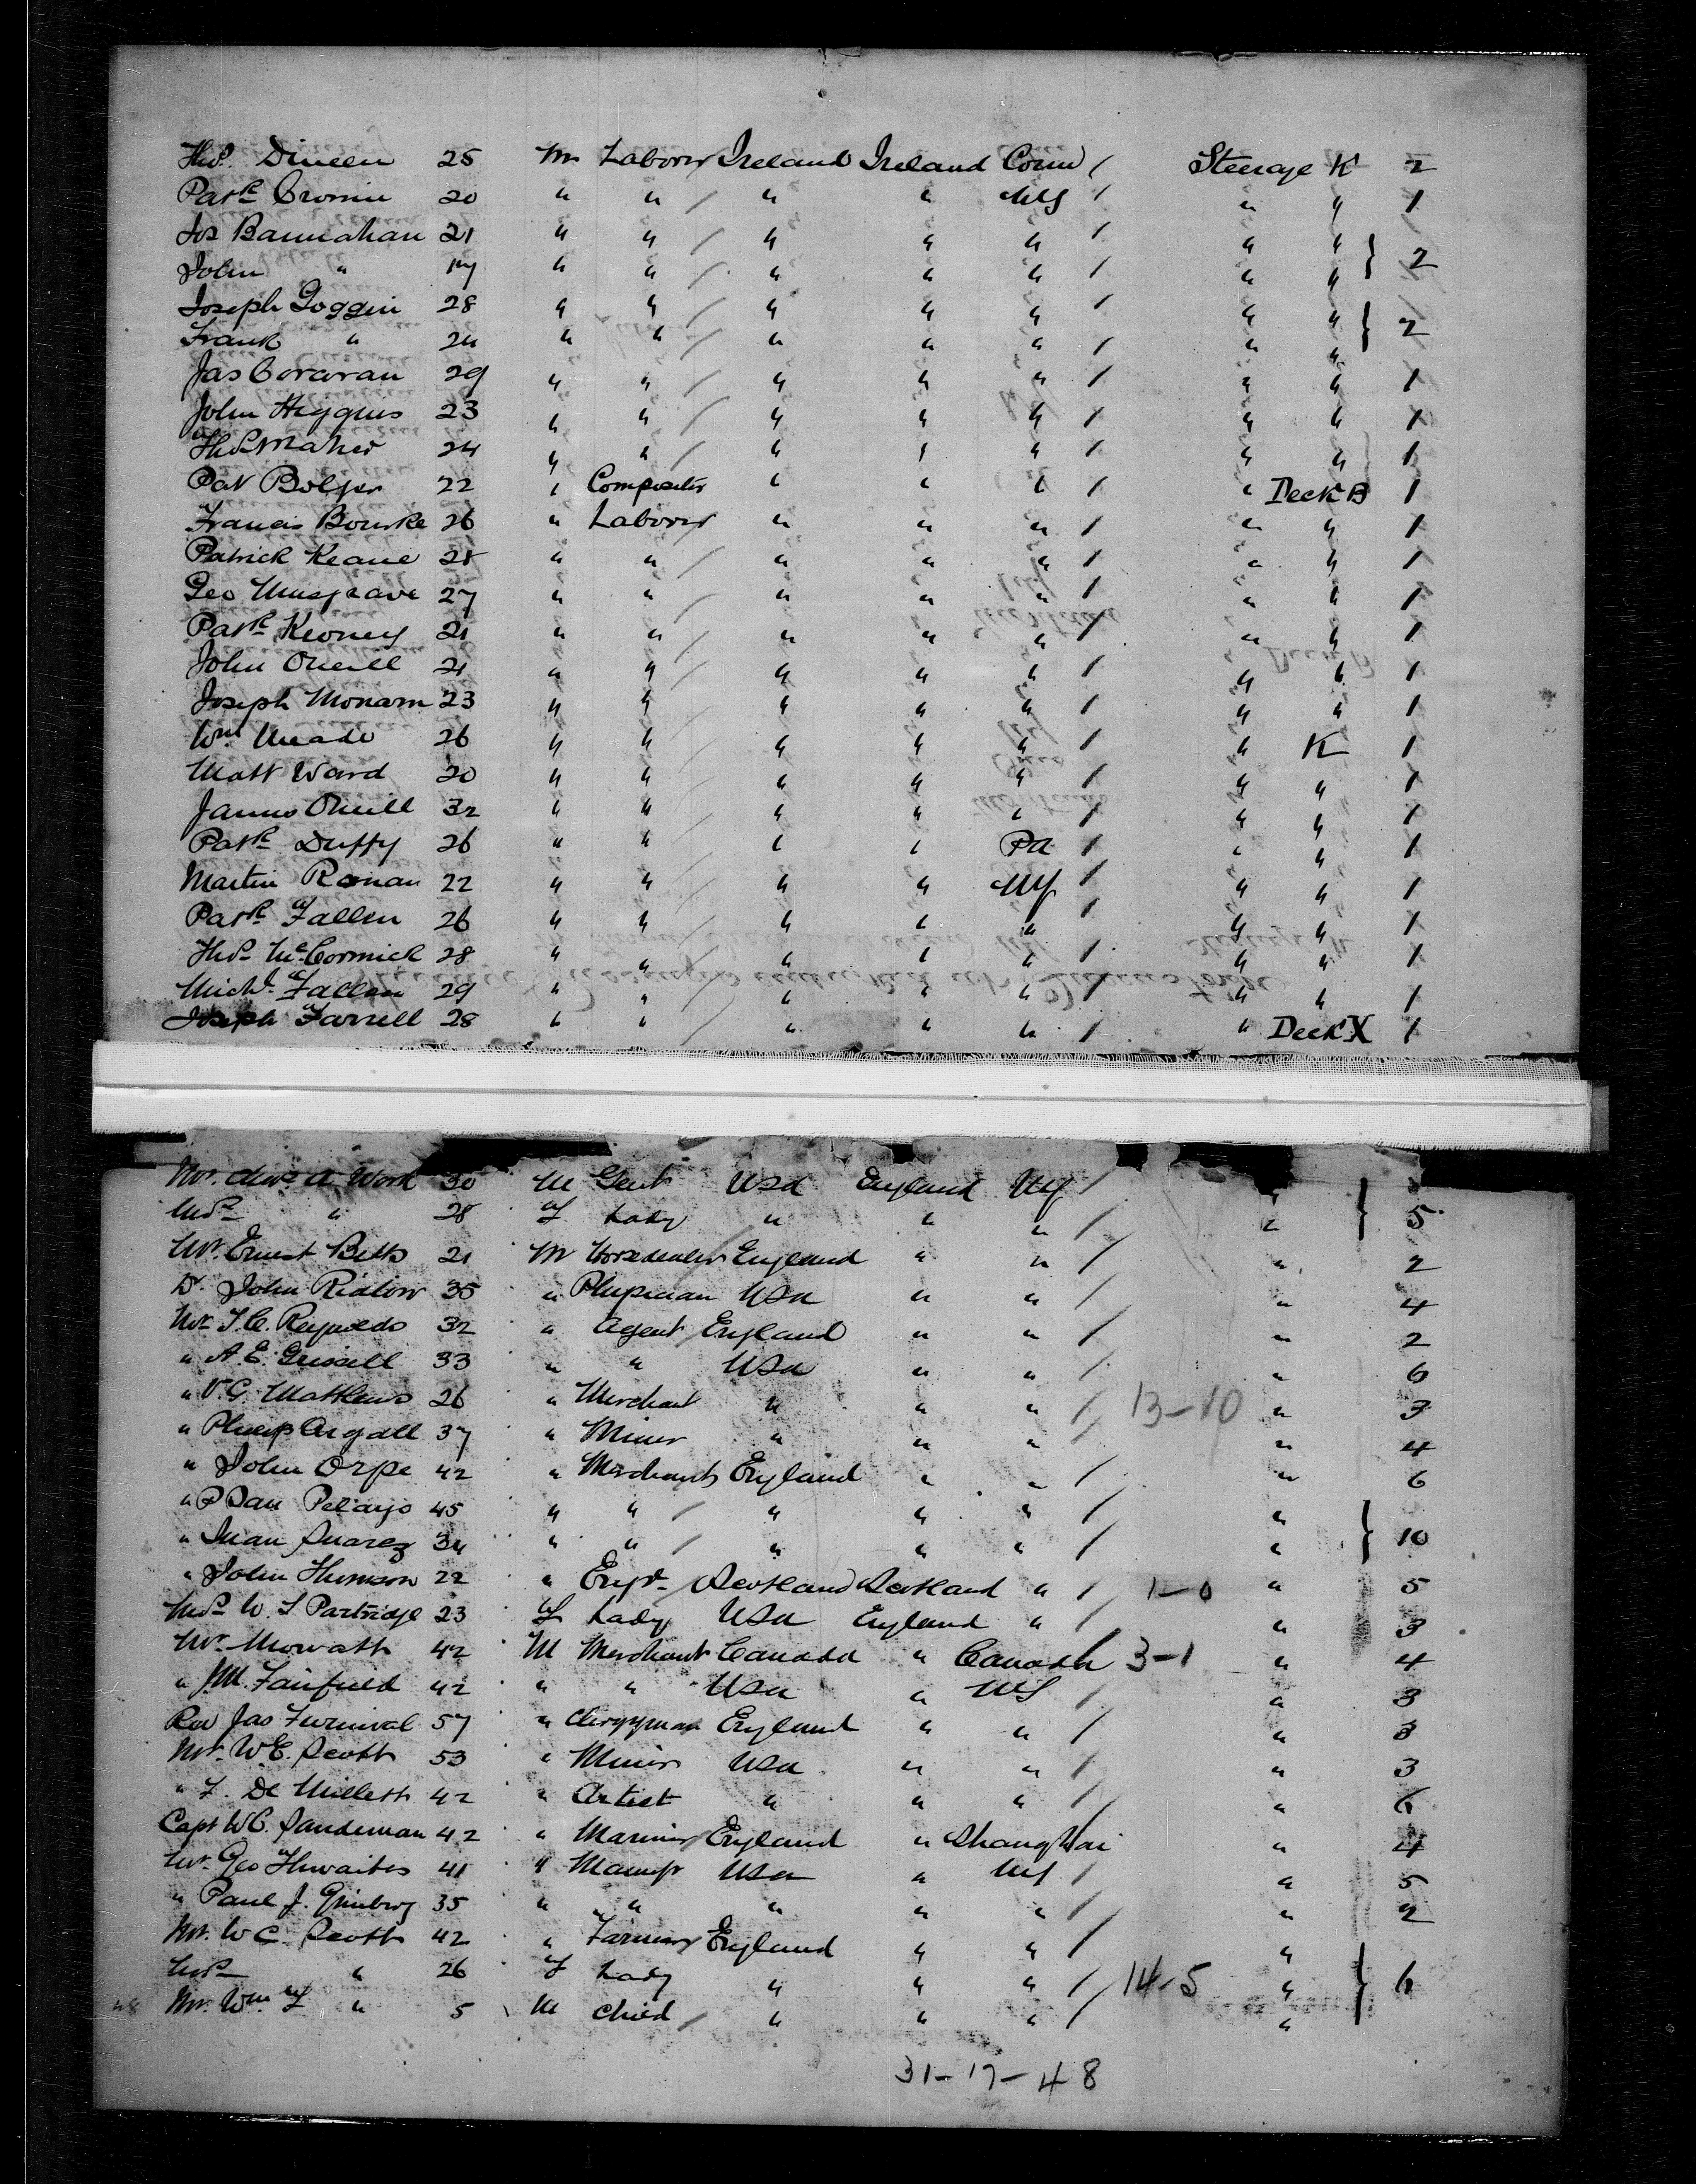 Thos. Dineen 25 M Laborer Ireland Ireland Conn / Steerage K 2
Patk Cronin 20 " " / " " NY / " " 1
Jos Bannahan 21 " " / " " " / " " } 2
John " 17 " " / " " " / " "
Joseph Goggin 28 " " / " " " / " " } 2
Frank " 24 " " / " " " / " "
Jas Corcoran 29 " " / " " " / " " 1
John Higgins 23 " " / " " " / " " 1
Thos Maher 24 " " / " " " / " " 1
Pat Bolger 22 " Compositor " " " / " Deck B 1
Francis Bourke 26 " Laborer " " " / " " 1
Patrick Keane 21 " " / " " " / " " 1
Geo Musgrave 27 " " / " " " / " " 1
Patk Keoney 21 " " / " " " / " " 1
John Oneill 21 " " / " " " / " " 1
Joseph 23 " " / " " " / " " 1
Wm Meade 26 " " / " " " / " K 1
Matt Ward 20 " " / " " " / " " 1
James Oneill 32 " " / " " " / " " 1
Patk Duffy 26 " " / " " Pa / " " 1
Martin Ronan 22 " " / " " NY / " " 1
Patk Fallen 26 " " / " " " / " " 1
Thos McCormick 28 " " / " " " / " " 1
Michl. Fallon 29 " " / " " " / " " 1
Joseph Farrell 28 " " / " " " / " Deck X 1
Mr. A Work 30 M Gent USA England NY / " } 5
Mrs " 28 F Lady " " " / "
Mr. Ernest Betts 21 M Horsedealer England " " / " 2
Dr. John Ridlow 35 " Physician USA " " / " 4
Mr T.C. Reynolds 32 " Agent England " " / " 2
" A.E. Grissell 33 " " USA " " / " 6
" V.G. Matthews 26 " Merchant " " " / / 13-10 " 3
" Philip Argall 37 " Miner " " " " 4
" John Orpe 42 " Merchant England " " / " 6
" P San Pelayo 45 " " / " " " / " } 10
" Juan Suarez 34 " " / " " " / "
" John Thomson 22 " Engr. / Scotland Scotland " / 1-0 " 5
Mrs W. S Partridge 23 F Lady USA England " / " 3
Mr. Mowatt 42 M Merchant Canada " Canada 3-1 " 4
" J.M. Fairfield 42 " " USA " NY / " 3
Rev Jas Furnival 57 " Clergyman England " " / " 3
Mr. W.E. Scott 53 " Miner USA " " / " 3
" F. De Millett 42 " Artist " " " / " 6
Capt W.C. Sandeman 42 " Mariner England " Shanghai " 4
Mr. Geo Thwaites 41 " Manufr USA " NY / " 5
" Paul J. 35 " " " " " / " 2
Mr. W C. Scott 42 " Farmer England " " / " } 6
Mrs " 26 F Lady " " " / 14-5 "
48 Mr. Wm F " 5 M Child / " " " / "
31-17-48